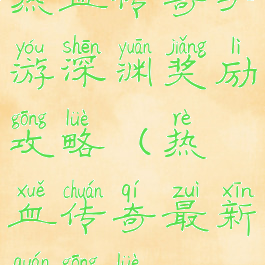 热血传奇手
yóu shēn yuān jiǎng lì
游深渊奖励
gōng lüè rè
攻略（热
xuě chuán qí zuì xīn
血传奇最新
gōng lüè